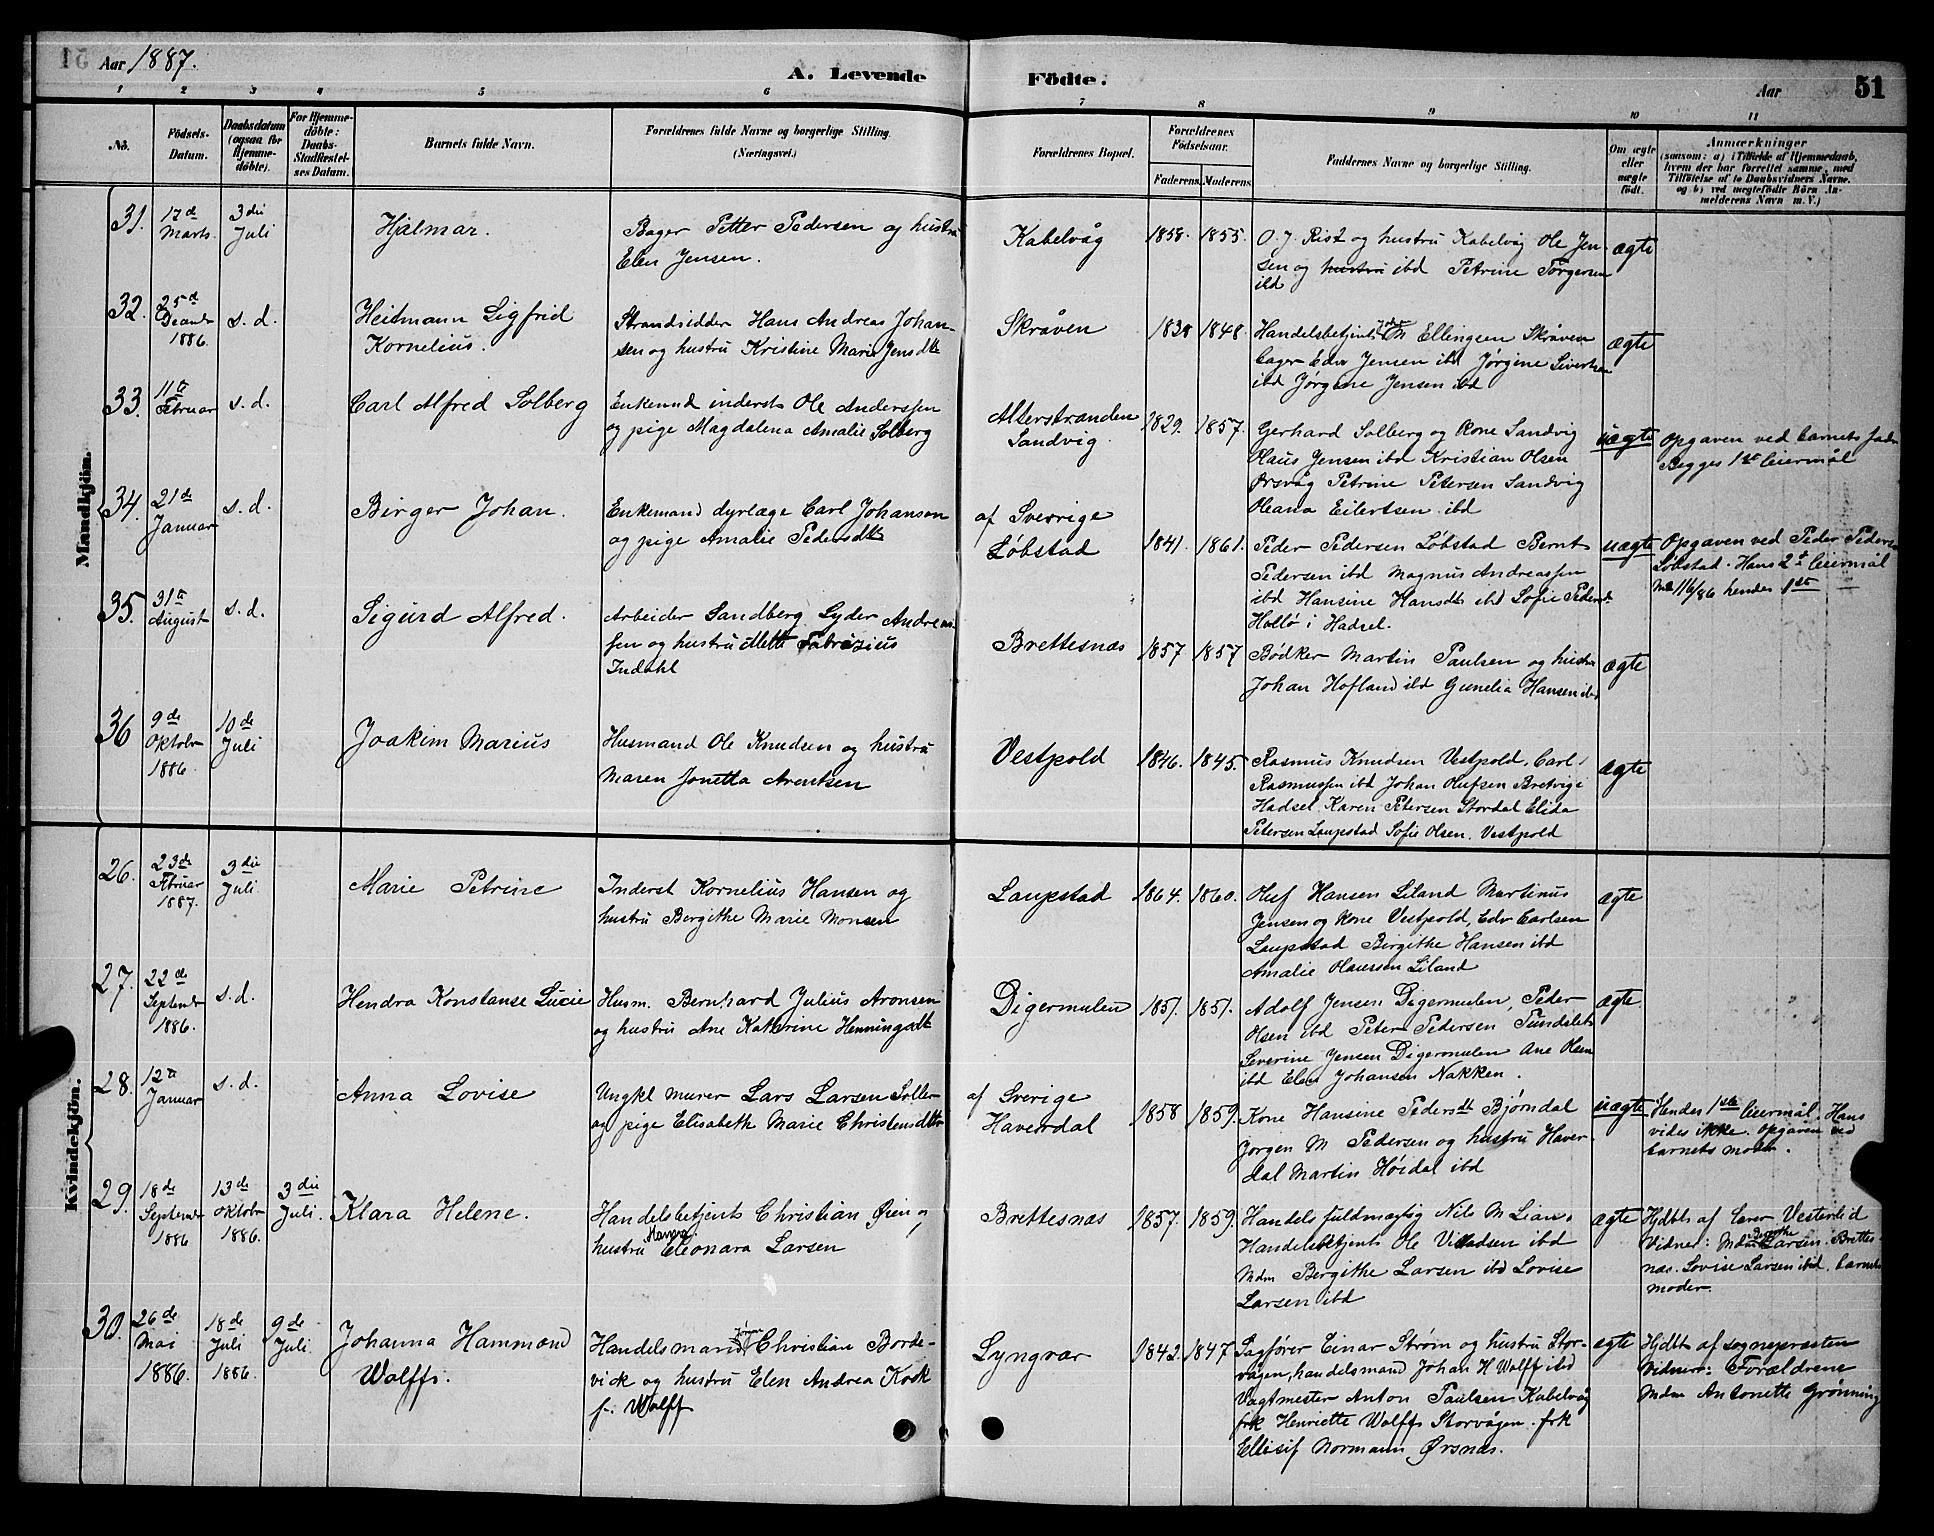 Aar 1887.
A. Levende Födte.
Aar 51
1 2 3 4 5 6 7 8 9 10 11
No.
Födsels-Datum.
Daabsdatum (ogsaa for Hjemmedöbte).
For Hjemmedöbte: Daabs-Stadfæstelses Datum.
Barnets fulde Navn.
Forældrenes fulde Navne og borgerlige Stilling. (Næringsvei.)
Forældrenes Bopæl.
Forældrenes Födselsaar.
Faderens. Moderens.
Faddernes Navne og borgerlige Stilling.
Om ægte eller uægte födt.
Anmærkninger
(saasom: a) i Tilfælde af Hjemmedaab, hvem der har forrettet samme, med Tilföielse af to Daabsvidners Navne. og b) ved uægtefödte Börn Anmelderens Navn m. V.)
Mandkjön.
31. 17de Marts 3die Juli Hjalmar.
Bager Petter Pedersen og hustru
Elen Jensen.
Kabelvåg 1858. 1855.
O. J. Rist og hustru Kabelvåg Ole Jen-
sen og hustru ibd Petrine Torgersen
ibd
ægte
32. 25de Decembr 1886. s. d. Heitmann Sigfrid
Kornelius.
Strandsidder Hans Andreas Johan-
sen og hustru Kristine Marie Jensdtr
Skråven 1838 1848.
Handelsbetjent Johan M Ellingsen Skråven
bager Edv Jensen ibd Jørgine Sivertsen
ibd Jørgine Jensen ibd
ægte
33. 11te Februar s. d. Carl Alfred Solberg
Enkemd inderst Ole Anderssen
og pige Magdalena Amalie Solberg
Alterstranden
Sandvig. 1829. 1857.
Gerhard Solberg og kone Sandvig
Olaus Jensen ibd Kristian Olsen
Ørsvåg Petrine Petersen Sandvig
Oleana Eilertsen ibd
uægte
Opgaven ved barnets fader
Begges 1ste leiermål
34. 21de Januar s. d. Birger Johan.
Enkemand dyrlæge Carl Johanson
og pige Amalie Pedersdtr
af Sverrige
Løbstad 1841. 1861.
Peder Pedersen Løbstad Bernt
Pedersen ibd Magnus Andreassen
ibd Hansine Hansdtr ibd Sofie Pedersdtr
Hollø i Hadsel.
uægte
Opgaven ved Peder Pedersen
Løbstad. Hans 2det leiermål
116/86 hendes 1ste
35. 31te August s. d. Sigurd Alfred.
Arbeider Sandberg Lyder Andreas-
sen og hustru Mette Fabrizius
Indahl
Brettesnæs 1857 1857
Bødker Martin Paulsen og hustru
Johan Hofland ibd Gunelia Hansen ibd
ægte
36 9de Oktobr 1886. 10de Juli Joakim Marius
Husmand Ole Knudsen og hustru
Maren Jonetta Arentsen
Vestpold 1846. 1845.
Rasmus Knudsen Vestpold, Carl
Rasmussen ibd Johan Olufsen Bretvig i
Hadsel Karen Petersen Stordal Elida
Petersen Laupstad Sofie Olsen. Vestpold
ægte
Kvindekjön.
26. 23de Februar 1887. 3die Juli. Marie Petrine
Inderst Kornelius Hansen og
hustru Bergithe Marie Monsen
Laupstad 1864. 1860.
Oluf Hansen Liland Martinus
Jensen og kone Vestpold, Edv Carlsen
Laupstad Birgithe Hansen ibd
Amalie Olaussen Liland
ægte
27. 22de Septembr 1886. s. d. Hendra Konstanse Lucie
Husm. Bernhard Julius Aronsen
og hustru Ane Katherine Henningsdtr
Digermulen 1851. 1851.
Adolf Jensen Digermulen, Peder
Olsen ibd Peter Pedersen Sundklet
Severine Jensen Digermulen Ane Olsen
ibd Elen Johansen Nakken.
ægte
28. 12te Januar s. d. Anna Lovise
Ungkl murer Lars Larsen Soller
og pige Elisabeth Marie Christensdtr
af Sverige
Haverdal 1858 1859.
Kone Hansine Pedersdt Bjørndal
Jørgen M Pedersen og hustru Haver-
dal Martin Høidal ibd
uægte
Hendes 1ste leiermål. Hans
vides ikke. Opgaven ved
barnets moder.
29. 18de Septembr 1886 13de Oktobr 1886. 3die Juli. Klara Helene.
Handelsbetjent Christian Øien og
hustru Hanna Eleonara Larsen
Brettesnæs 1857. 1859.
Handelsfuldmægtig Nils M Lian,
Handelsbetjent Ole Villadsen ibd
Mdm Bergithe Larsen ibd Lovise
Larsen ibd
ægte
Hjdbt af lærer Vesterlid
Vidner: Mdm Bergithe Larsen Brettes-
næs. Lovise Larsen ibd. barnets
moder.
30. 26de Mai 1886. 18de Juli 1886. 9de Juli. Johanna Hammond
Wolff.
Handelsmand Jørgen Christian Borde-
vick og hustru Elen Andrea Kock
f. Wolff
Lyngvær 1842. 1847
Sagfører Einar Strøm og hustru Stor-
vågen, handelsmand Johan H Wolff ibd
Vagtmester Anton Paulsen Kabelvåg
frk Henriette Wolff Storvågen. frk
Ellisif Normann Ørsnæs.
ægte
Hjdbt af sognepræsten
Vidner: Forældrene
Mdm Antonette Grønning